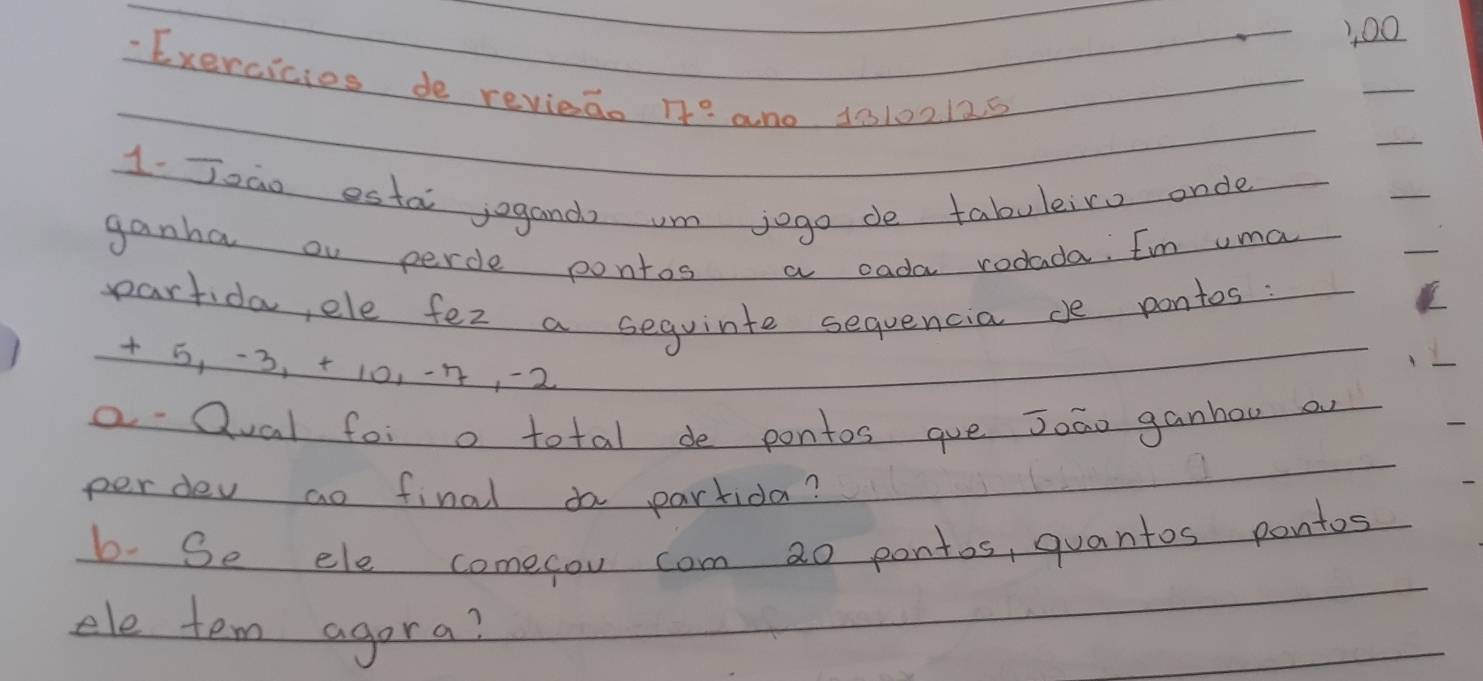 - Exercícios de revisão 7º ano 13/02/25
1- João está jogando um jogo de tabuleiro onde
ganha ou perde pontos a cada rodada. Em uma
partida, ele fez a seguinte sequencia de pontos:
+ 5, -3, + 10, -7, -2
a- Qual foi o total de pontos que João ganhou ou
perdeu ao final da partida?
b- Se ele começou com 20 pontos, quantos pontos
ele tem agora?